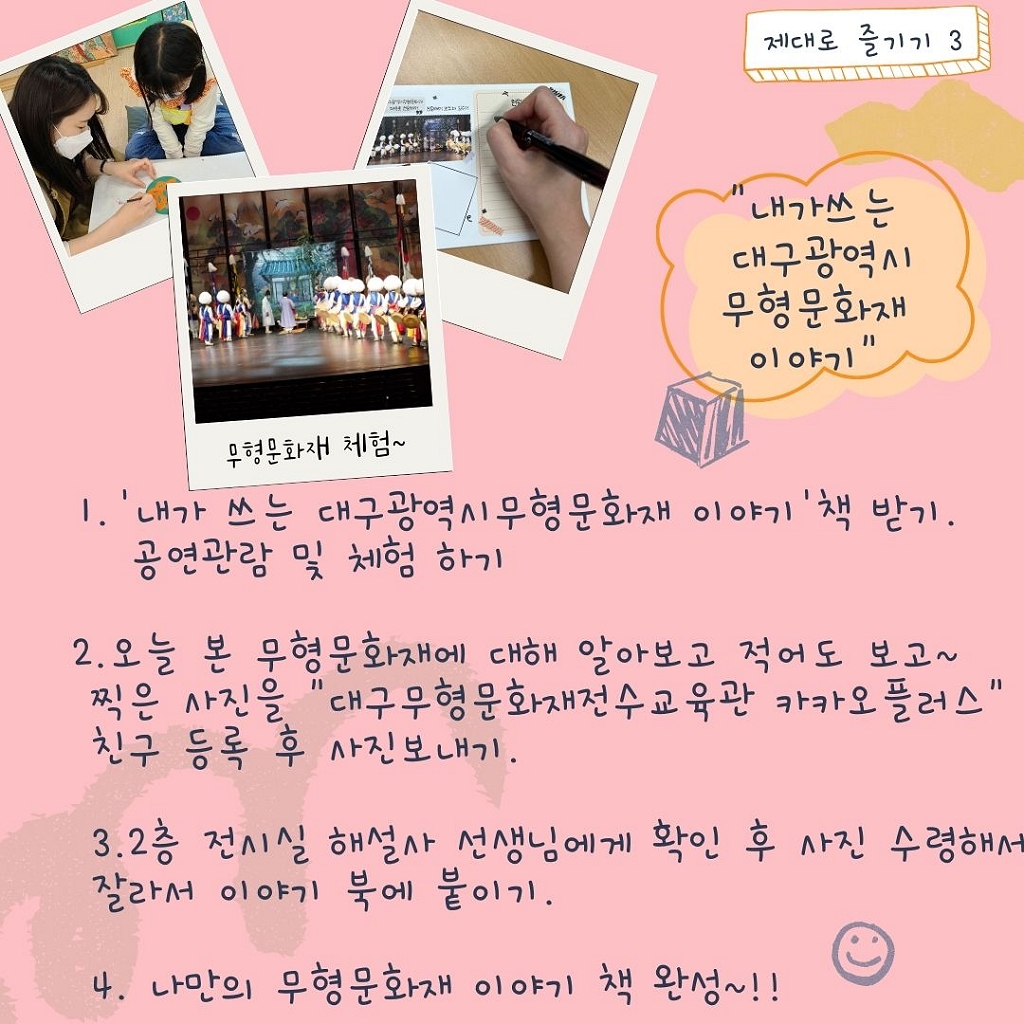 제대로 즐기기 3
"내가쓰는
대구광역시
무형문화재
이야기"
무형문화재 체험~
1. '내가 쓰는 대구광역시무형문화재 이야기'책 받기.
공연관람 및 체험 하기
2.오늘 본 무형문화재에 대해 알아보고 적어도 보고~
찍은 사진을 "대구무형문화재전수교육관 카카오플러스"
친구 등록 후 사진보내기.
3.2층 전시실 해설사 선생님에게 확인 후 사진 수령해서
잘라서 이야기 북에 붙이기.
4. 나만의 무형문화재 이야기 책 완성~!!